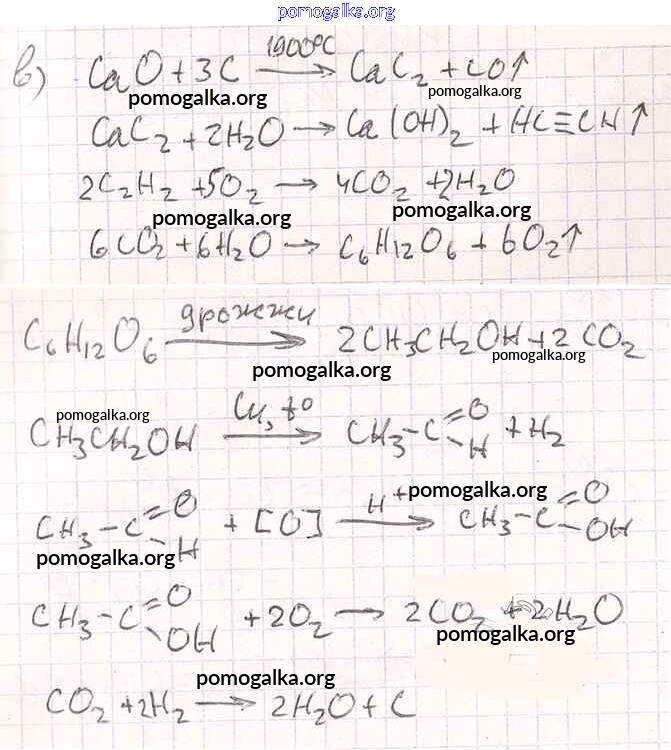 pomogalka.org
в) CaO + 3C —1900°C→ CaC₂ + CO↑
pomogalka.org pomogalka.org
CaC₂ + 2H₂O → Ca(OH)₂ + HC≡CH↑
2C₂H₂ + 5O₂ → 4CO₂ + 2H₂O
pomogalka.org pomogalka.org
6CO₂ + 6H₂O → C₆H₁₂O₆ + 6O₂↑
C₆H₁₂O₆ —дрожжи→ 2CH₃CH₂OH + 2CO₂
pomogalka.org pomogalka.org
pomogalka.org
CH₃CH₂OH —Cu, t°→ CH₃-C(=O)-H + H₂
pomogalka.org
CH₃-C(=O)-H + [O] —H⁺→ CH₃-C(=O)-OH
pomogalka.org
CH₃-C(=O)-OH + 2O₂ → 2CO₂ + 2H₂O
pomogalka.org
pomogalka.org
CO₂ + 2H₂ → 2H₂O + C